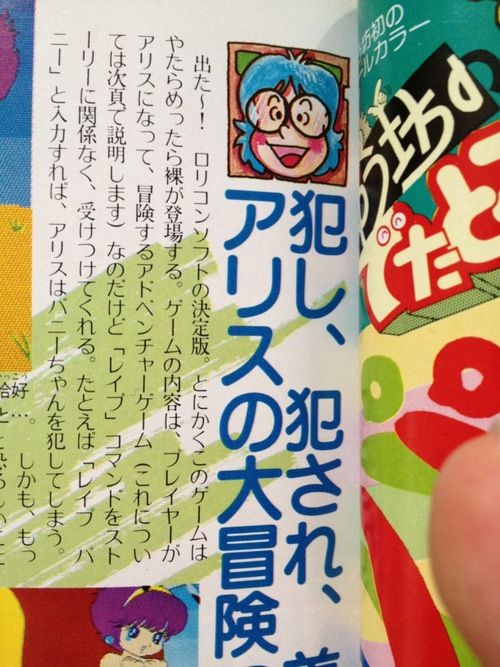 坊初の
ルカラー
う坊の
でたとこ
犯し、犯され、
アリスの大冒険
出た〜! ロリコンソフトの決定版。とにかくこのゲームは
やたらめったら裸が登場する。ゲームの内容は、プレイヤーが
アリスになって、冒険するアドベンチャーゲーム(これについ
ては次頁で説明します)なのだけど「レイプ」コマンドをスト
ーリーに関係なく、受けつけてくれる。たとえば「レイプ バ
ニー」と入力すれば、アリスはバニーちゃんを犯してしまう。
しかも、もっ
恰好
…。